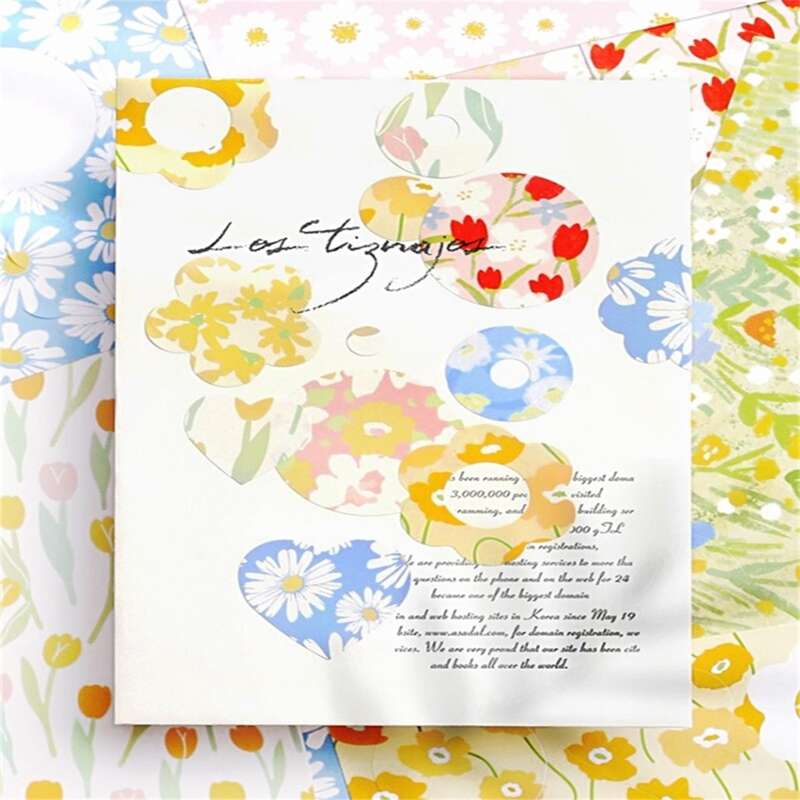 Los Tiznajos
s been running biggest doma
3,000,000 pe visited
ramming, and building ser
000 g
n registrations,
e are providing hosting services to more tha
questions on the phone and on the web for 24
became one of the biggest domain
in and web hosting sites in Korea since May 19
bsite, www.asadal.com, for domain registration, we
vices. We are very proud that our site has been cite
and books all over the world.